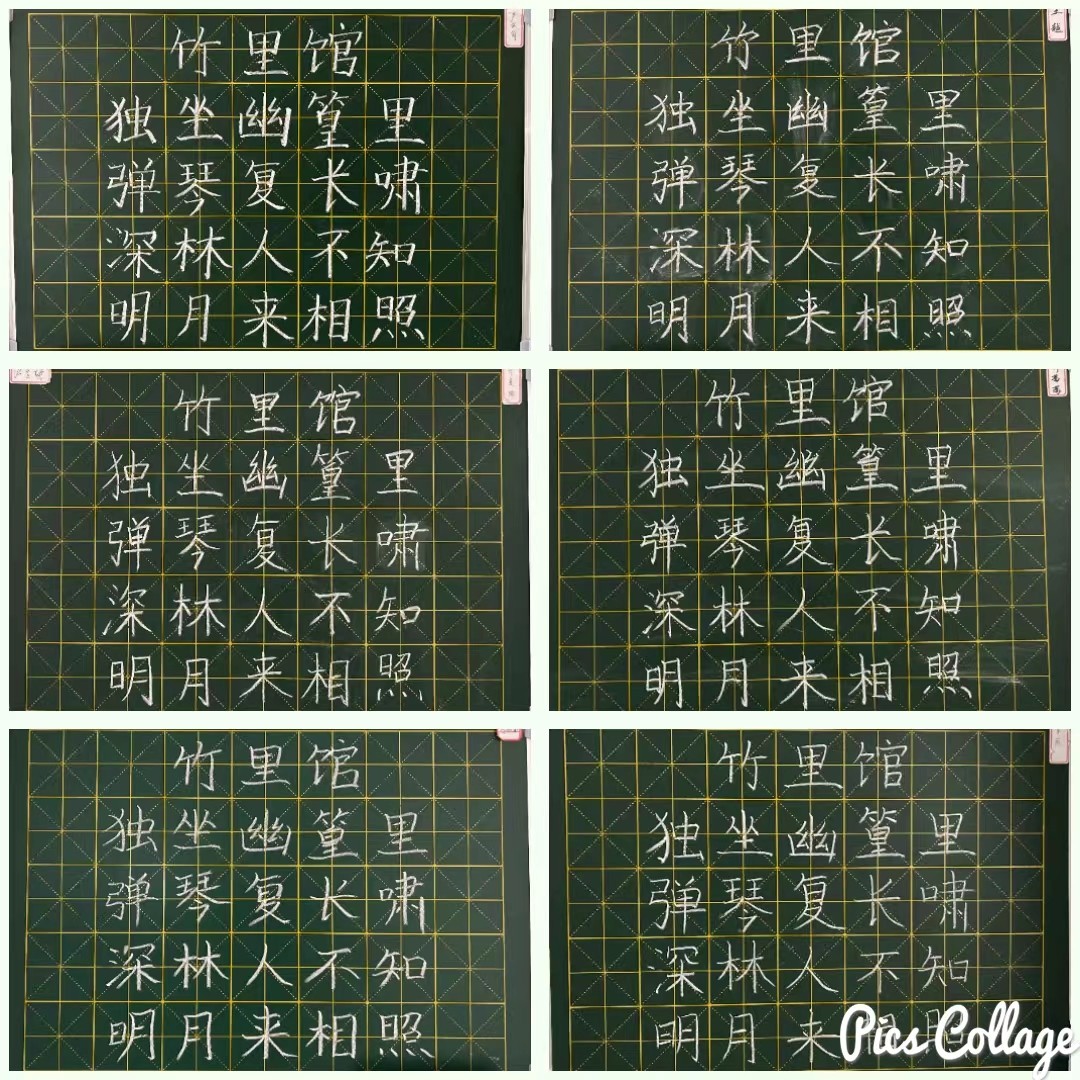 竹里馆
独坐幽篁里
弹琴复长啸
深林人不知
明月来相照
竹里馆
独坐幽篁里
弹琴复长啸
深林人不知
明月来相照
竹里馆
独坐幽篁里
弹琴复长啸
深林人不知
明月来相照
竹里馆
独坐幽篁里
弹琴复长啸
深林人不知
明月来相照
竹里馆
独坐幽篁里
弹琴复长啸
深林人不知
明月来相照
竹里馆
独坐幽篁里
弹琴复长啸
深林人不知
明月来相照
Pics Collage